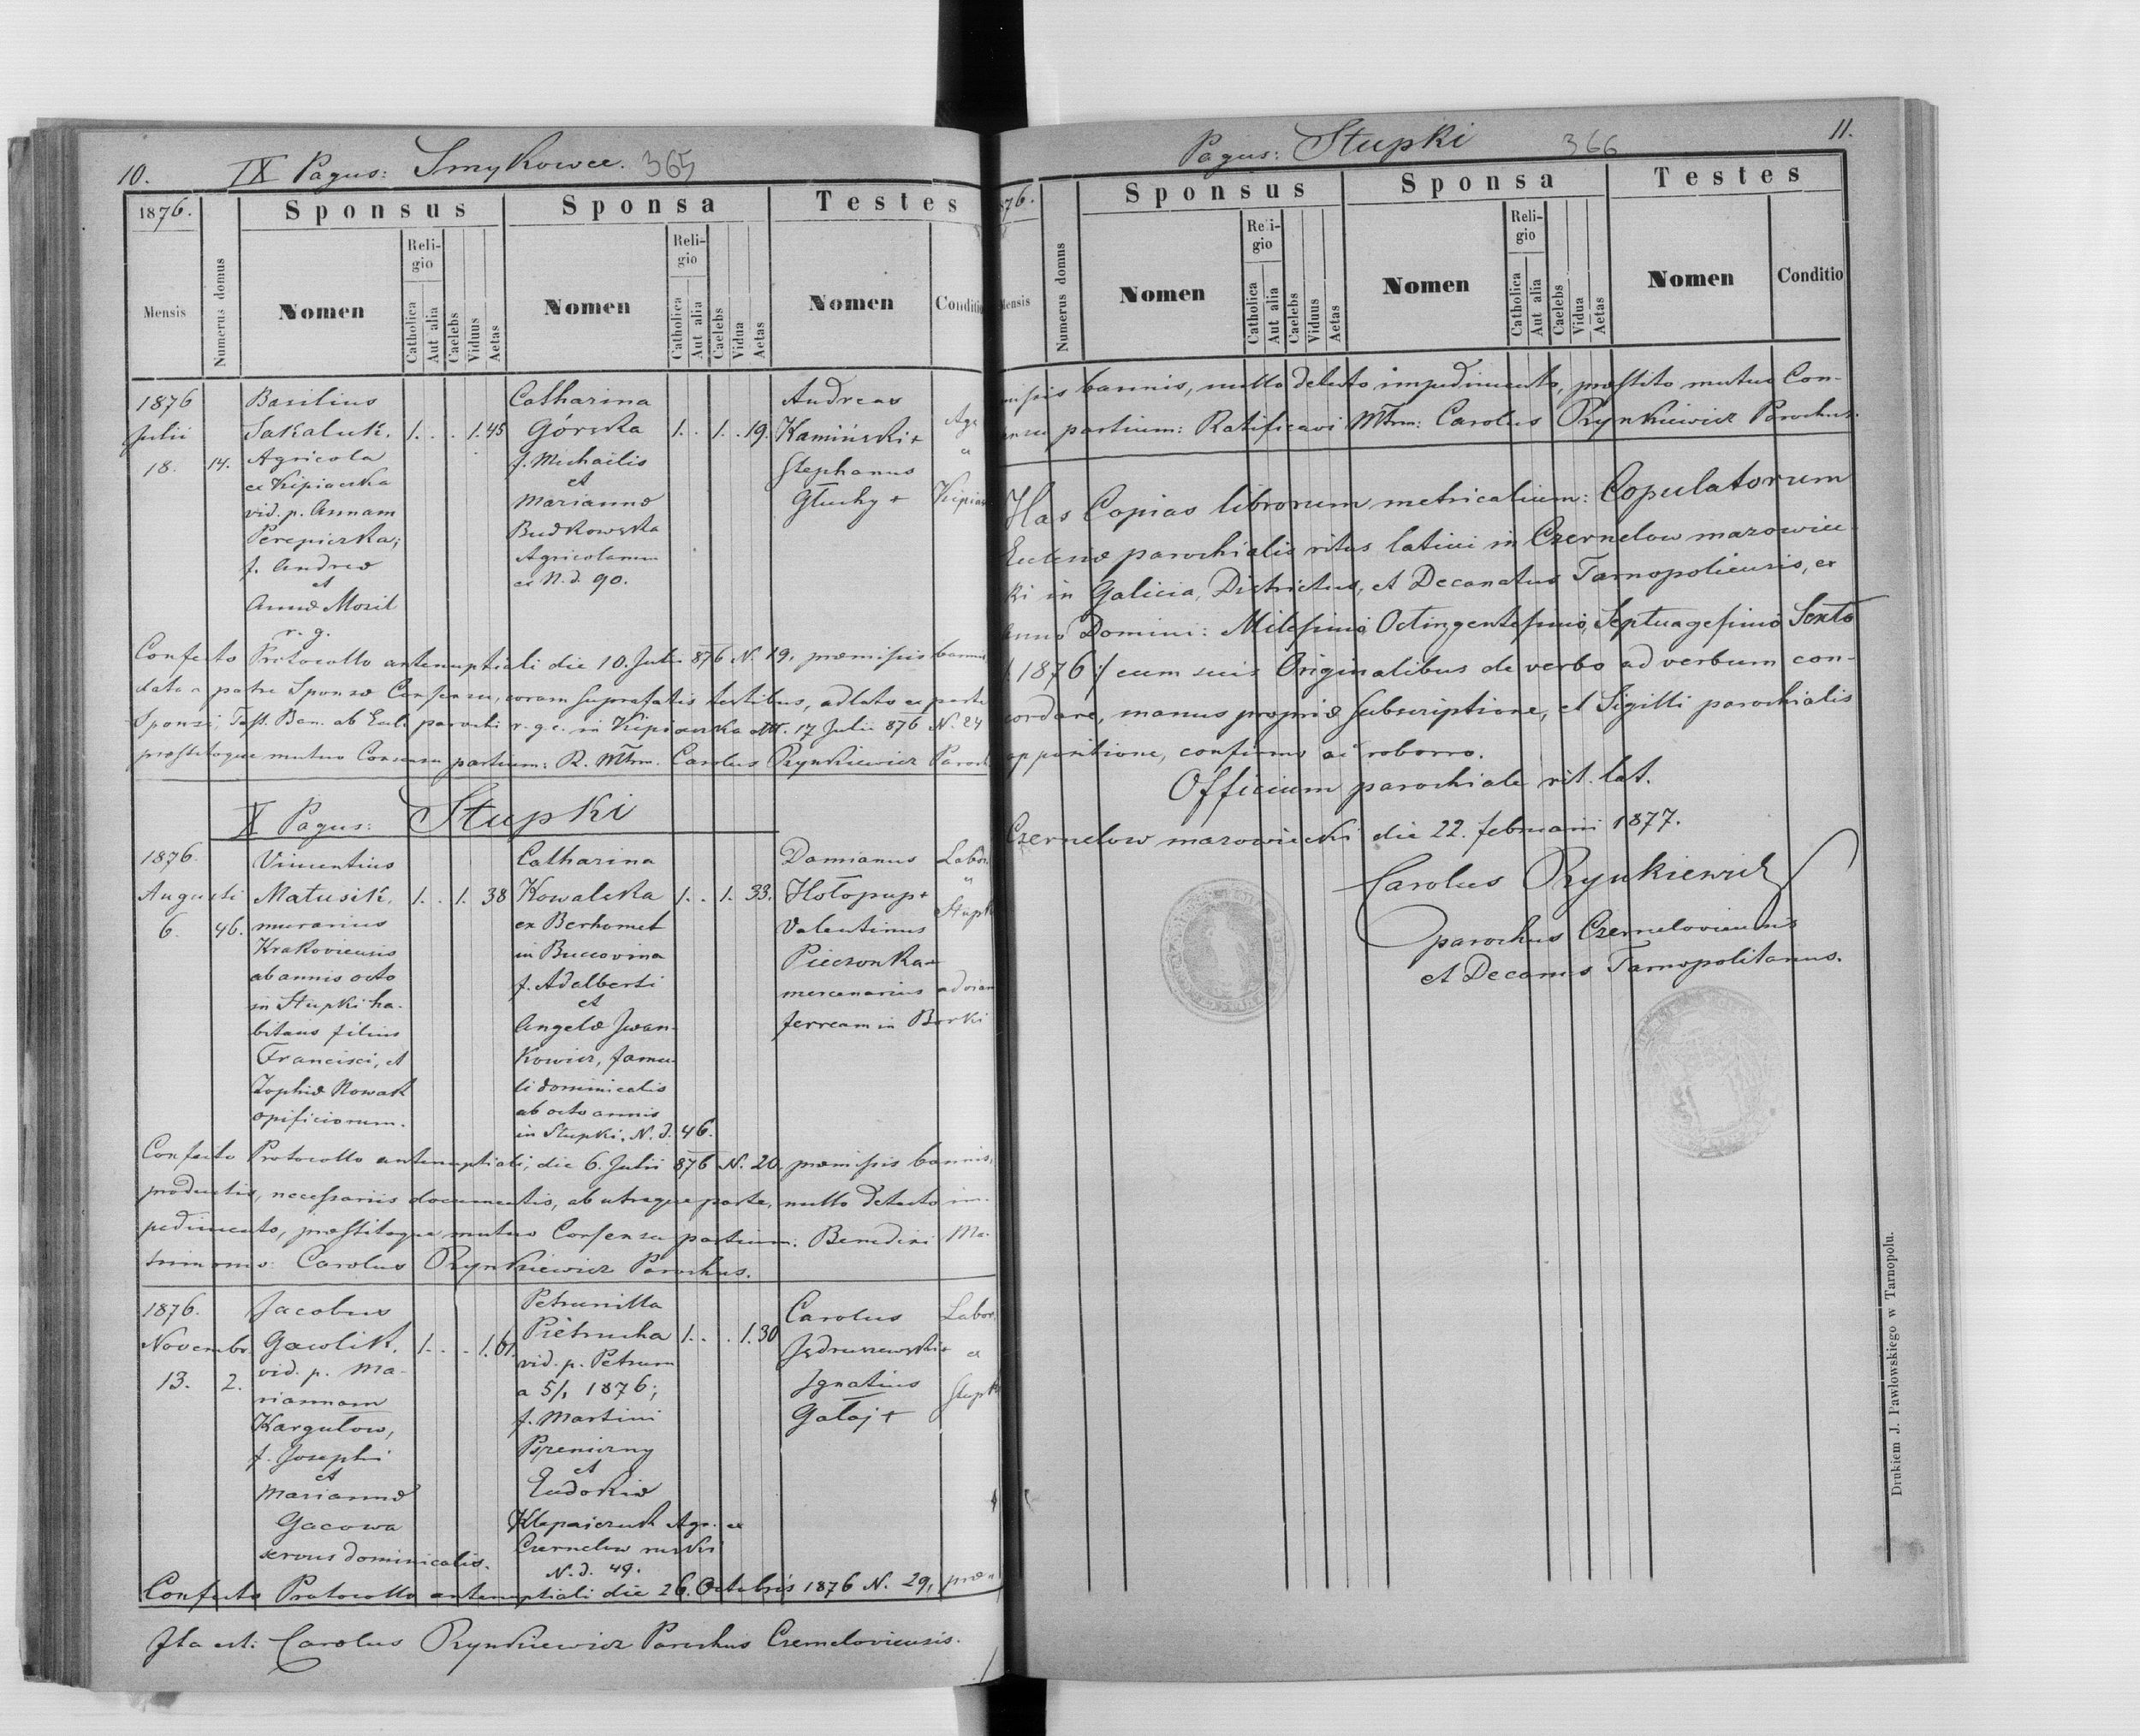 10. IX Pagus: Smykowce. 365
1876.
Sponsus Sponsa Testes
Mensis
Numerus domus
Nomen
Religio
Catholica
Aut alia
Caelebs
Viduus
Aetas
Nomen
Religio
Catholica
Aut alia
Caelebs
Vidua
Aetas
Nomen
Conditio
1876
Julii
18.
14.
Basilius
Sakaluk.
Agricola
ex Kipiaczka
vid. p. Annam
f. Andreæ
et
Annæ Mozil
r. g.
1. . . 1. 45
Catharina
Górska
f. Michaëlis
et
Mariannæ
Budkowska
Agricolarum
ex N. d. 90.
1. . 1. . 19.
Andreas
Kamiński +
Stephanus
Głuchy +
Confecto Protocollo antenuptiali die 10. Julii 876 N. 19. præmissis bannis,
dato a patre Sponsæ Consensu, coram suprafatis testibus, adlato ex parte
Sponsi, Test. Ban. ab Eccl. parochi r. g. c. in Kipiaczka 17 Julii 876 N. 24
præstitoque mutuo Consensu partium: R. Mtrm. Carolus Rynkiewicz Paroch
X Pagus: Stupki
1876.
Augusti
6.
46.
Vincentius
Matusik,
murarius
Krakoviensis
ab annis octo
in Stupki ha-
bitans filius
Francisci, et
Zophiæ Nowak
opificiorum.
1. . 1. 38
Catharina
Kowalska
ex Berhomet
in Buccovina
f. Adalberti
et
Angelæ Iwan-
kowicz, famu-
li dominicalis
ab octo annis
in Stupki. N. d. 46.
1. . 1. 33.
Damianus
Hołopup +
Valentinus
Pieczonka +
mercenarius ad viam
ferream in Borki
Confecto Protocollo antenuptiali, die 6. Julii 876 N. 20. præmissis bannis,
productis, necessariis documentis, ab utraque parte, nullo detecto im-
pedimento, præstitoque mutuo Consensu partium: Benedixi Ma-
trimonio: Carolus Rynkiewicz Parochus.
1876.
Novembr.
13.
2.
Jacobus
Gawlik,
vid. p. Ma-
riannam
Kargulow,
f. Josephi
et
Mariannæ
Gacowa
servus dominicalis.
1. . . 1. 61.
Petrunilla
Pietrucha
vid. p. Petrum
a 5/1 1876;
f. Martini
Pszeniczny
et
Eudokiæ
Agr. ex
Czernelow ruski
N. d. 49.
1. . . 1. 30
Carolus
Jędruszewski +
Ignatius
Gałaj +
Confecto Protocollo antenuptiali die 26. Octobris 1876 N. 29, præ-
Ita est: Carolus Rynkiewicz Parochus Czerneloviensis.
Pagus: Stupki 366 11.
Sponsus Sponsa Testes
Numerus domus
Nomen
Religio
Catholica
Aut alia
Caelebs
Viduus
Aetas
Nomen
Religio
Catholica
Aut alia
Caelebs
Vidua
Aetas
Nomen
Conditio
missis bannis, nullo detecto impedimento, præstito mutuo Con-
sensu partium: Ratificavi Mtrm: Carolus Rynkiewicz Parochus.
Has Copias librorum metricalium: Copulatorum
Ecclesiæ parochialis ritus latini in Czernelow mazowiec-
ki in Galicia, Districtus, et Decanatus Tarnopoliensis, ex
Anno Domini: Milesimo, Octingentesimo, Septuagesimo Sexto
/: 1876 :/ cum suis Originalibus de verbo ad verbum con-
cordare, manus propriæ subscriptione, et Sigilli parochialis
appositione, confirmo ac roborro.
Officium parochiale rit. lat.
Czernelow mazowiecki die 22. februarii 1877.
Carolus Rynkiewicz
parochus Czerneloviensis
et Decanus Tarnopolitanus.
Drukiem J. Pawlowskiego w Tarnopolu.